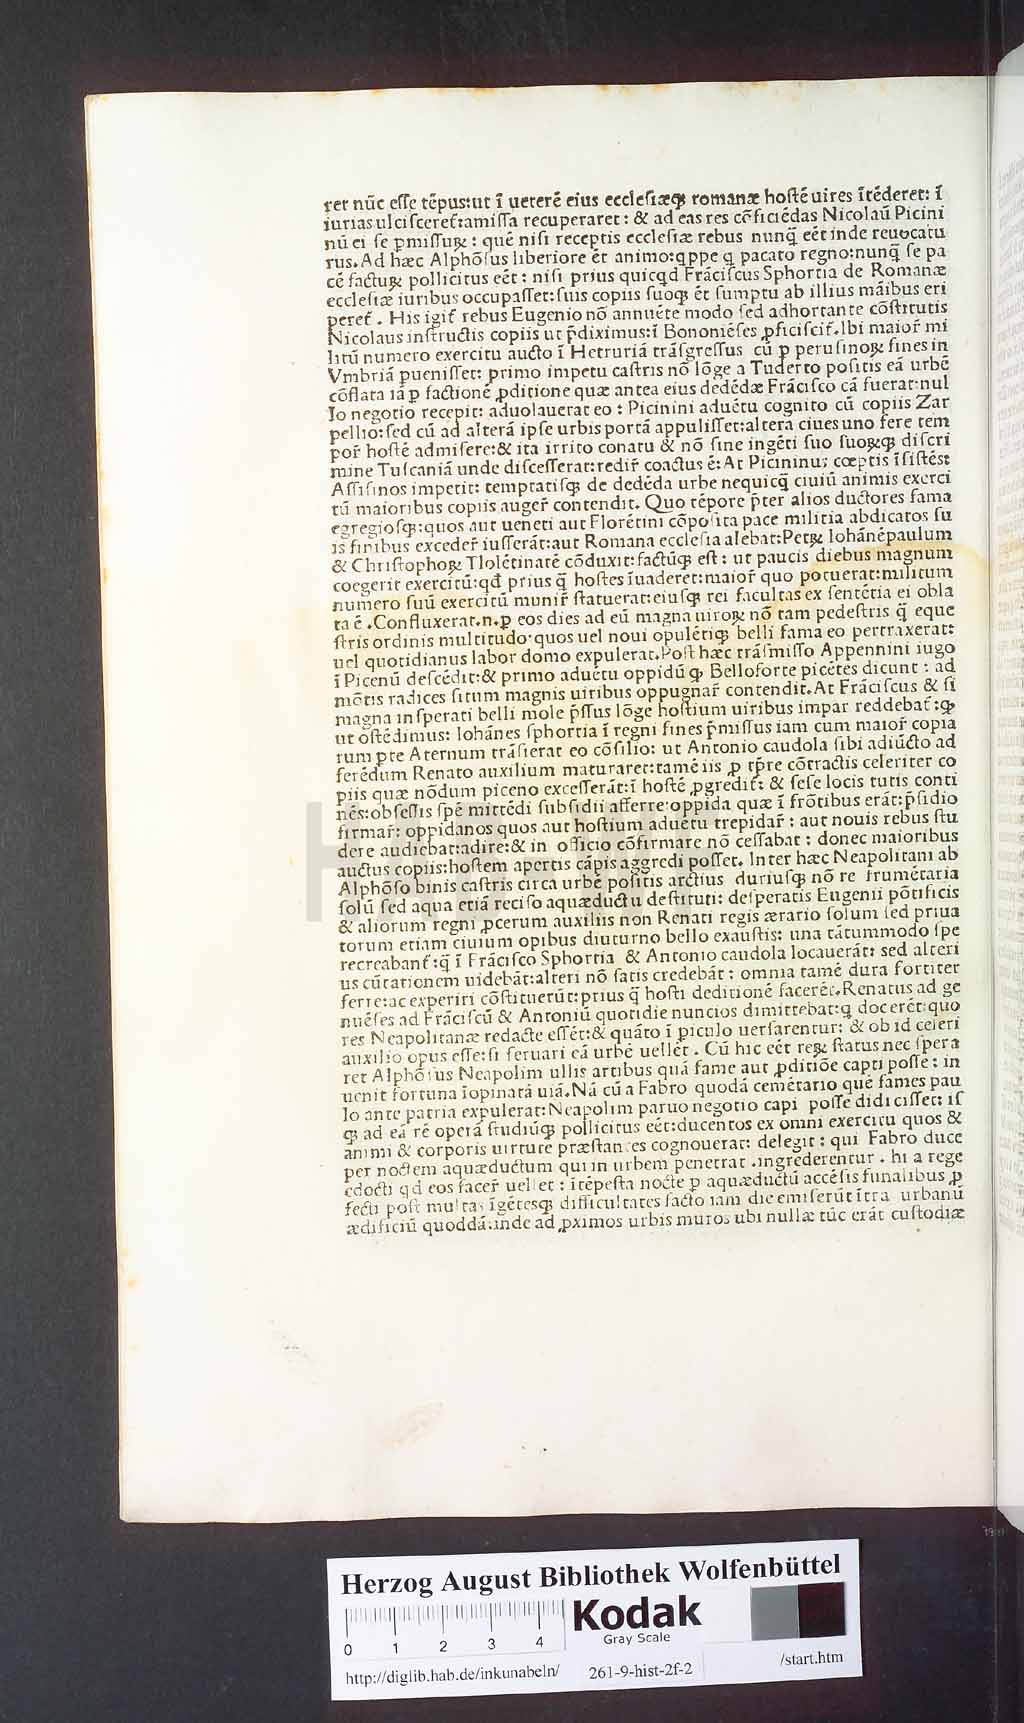 ret nūc eſſe tēpus:ut ī ueterē eius eccleſiæqꝫ romanæ hoſtē uires ītēderet: ī
iurias ulciſceret᷑:amiſſa recuperaret : & ad eas res cōficiēdas Nicolaū Picini
nū ei ſe ꝑmiſſuꝝ : quē niſi receptis eccleſiæ rebus nunq̄ eēt inde reuocatu
rus. Ad hæc Alphōſus liberiore ēt animo:qppe q pacato regno:nunq̄ ſe pa
cē factuꝝ pollicitus eēt : niſi prius quicqd Frāciſcus Sphortia de Romanæ
eccleſiæ iuribus occupaſſet:ſuis copiis ſuoqꝫ ēt ſumptu ab illius māibus eri
peret᷑ . His igit᷑ rebus Eugenio nō annuēte modo ſed adhortante cōſtitutis
Nicolaus inſtructis copiis ut p̄diximus:ī Bononiēſes ꝓficiſcit᷑.Ibi maior̄ mi
litū numero exercitu aucto ī Hetruriā trāſgreſſus cū ꝑ peruſinoꝝ fines in
Vmbriā ꝑueniſſet: primo impetu caſtris nō lōge a Tuderto poſitis eā urbē
cōflata iā ꝑ factionē ꝓditione quæ antea eius dedēdæ Frāciſco cā fuerat:nul
lo negotio recepit: aduolauerat eo : Picinini aduētu cognito cū copiis Zar
pellio:ſed cū ad alterā ipſe urbis portā appuliſſet:altera ciues uno fere tem
por̄ hoſtē admiſere:& ita irrito conatu & nō ſine ingēti ſuo ſuoꝝqꝫ diſcri
mine Tuſcaniā unde diſceſſerat:redir̄ coactus ē: At Picininus cœptis īſiſtēs:
Aſſiſinos impetit: temptatiſqꝫ de dedēda urbe nequicq̄ ciuiū animis exerci
tū maioribus copiis auger̄ contendit. Quo tēpore p̄ter alios ductores fama
egregioſqꝫ:quos aut ueneti aut Florētini cōpoſita pace militia abdicatos ſu
is finibus exceder̄ iuſſerāt:aut Romana eccleſia alebat:Petꝝ Iohānēpaulum
& Chriſtophoꝝ Tlolētinatē cōduxit:factūqꝫ eſt : ut paucis diebus magnum
coegerit exercitū:qđ prius q̄ hoſtes īuaderet:maior̄ quo potuerat:militum
numero ſuū exercitū munir̄ ſtatuerat:eiuſqꝫ rei facultas ex ſentētia ei obla
ta ē .Confluxerat.n.ꝑ eos dies ad eū magna uiroꝝ nō tam pedeſtris q̄ eque
ſtris ordinis multitudo:quos uel noui opulētiqꝫ belli fama eo pertraxerat:
uel quotidianus labor domo expulerat.Poſt hæc trāſmiſſo Appennini iugo
ī Picenū deſcēdit:& primo aduētu oppidū qꝫ Belloforte picētes dicunt : ad
mōtis radices ſitum magnis uiribus oppugnar̄ contendit. At Frāciſcus & ſi
magna inſperati belli mole p̄ſſus lōge hoſtium uiribus impar reddebat᷑:qꝫ
ut oſtēdimus: Iohānes ſphortia ī regni fines p̄miſſus iam cum maior̄ copia
rum ꝑte Aternum trāſierat eo cōſilio: ut Antonio caudola ſibi adiūcto ad
ferēdum Renato auxilium maturaret:tamē iis ꝓ tp̄re cōtractis celeriter co
piis quæ nōdum piceno exceſſerāt:ī hoſtē ꝓgredit᷑: & ſeſe locis tutis conti
nēs:obſeſſis ſpē mittēdi ſubſidii afferre:oppida quæ ī frōtibus erāt:p̄ſidio
firmar̄: oppidanos quos aut hoſtium aduētu trepidar̄ : aut nouis rebus ſtu
dere audiebat:adire:& in officio cōfirmare nō ceſſabat : donec maioribus
auctus copiis:hoſtem apertis cāpis aggredi poſſet. Inter hæc Neapolitani ab
Alphōſo binis caſtris circa urbē poſitis arctius duriuſqꝫ nō re frumētaria
ſolū ſed aqua etiā reciſo aquæductu deſtituti: deſperatis Eugenii pōtificis
& aliorum regni ꝓcerum auxiliis non Renati regis ærario ſolum ſed priua
torum etiam ciuium opibus diuturno bello exauſtis: una tātummodo ſpe
recreabant᷑:q̄ ī Frāciſco Sphortia & Antonio caudola locauerāt: sed alteri
us cūtationem uidebāt:alteri nō ſatis credebāt : omnia tamē dura fortiter
ferre:ac experiri cōſtituerūt:prius q̄ hoſti deditionē facerēt.Renatus ad ge
nuēſes ad Frāciſcū & Antoniū quotidie nuncios dimittebat:q docerēt:quo
res Neapolitanæ redacte eſſēt:& quāto ī ꝑiculo uerſarentur: & ob id celeri
auxilio opus eſſe:ſi ſeruari eā urbē uellēt . Cū hic eēt reꝝ ſtatus nec ſpera
ret Alphōſus Neapolim ullis artibus quā fame aut ꝓditiōe capi poſſe : in
uenit fortuna īopinatā uiā. Nā cū a Fabro quodā cemētario quē fames pau
lo ante patria expulerat:Neapolim paruo negotio capi poſſe didiciſſet: iſ
qꝫ ad eā rē operā ſtudiūqꝫ pollicitus eēt:ducentos ex omni exercitu quos &
animi & corporis uirtute præſtantes cognouerat: delegit : qui Fabro duce
per noctem aquæductum qui in urbem penetrat .ingrederentur . hi a rege
edocti qd eos facer̄ uellet : ītēpeſta nocte ꝑ aquæductū accēſis funalibus ꝓ
fecti poſt multas īgētesqꝫ difficultates facto iam die emiſerūt ītra urbanū
ædificiū quoddā:inde ad ꝓximos urbis muros ubi nullæ tūc erāt cuſtodiæ
HAB-WF
Herzog August Bibliothek Wolfenbüttel
0 1 2 3 4
Kodak
Gray Scale
http://diglib.hab.de/inkunabeln/ 261-9-hist-2f-2 /start.htm